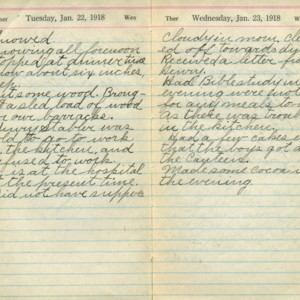 Ther Tuesday, Jan. 22, 1918 Wea
nowed
nowing all forenoon
opped at dinner time
now about six inches,
ut some wood. Broug-
a sled load of wood
or our barracks.
enry Stabler was
old to go to work
the kitchen, and
efused to work.
is at the hospital
t the present time.
id not have supper
Ther Wednesday, Jan. 23, 1918 Wea
Cloudy in morn, clea
ed off towards d
Received a letter fro
Henry.
Had Bible study in
evening were not
for any meals to
As there was troub
in the kitchen,
Had a few cakes
that the boys got a
the Canteen.
Made some cocoa i
the evening